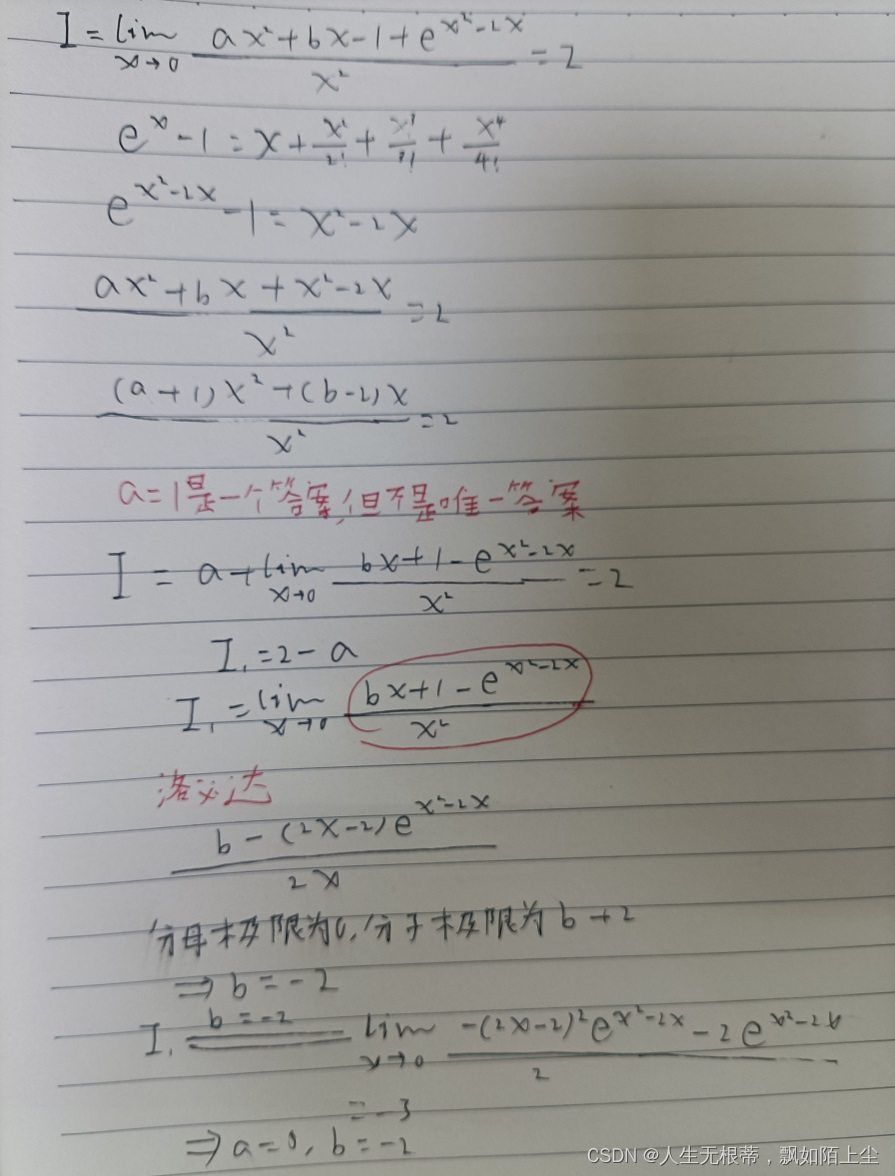 I = lim x→0 (ax²+bx-1+e^(x²-2x))/x² = 2
e^x - 1 = x + x²/2! + + x⁴/4!
e^(x²-2x) - 1 = x²-2x
(ax²+bx+x²-2x)/x² = 2
((a+1)x²+(b-2)x)/x² = 2
a=1是一个答案,但不是唯一答案
I = a + lim x→0 (bx+1-e^(x²-2x))/x² = 2
I₁ = 2-a
I₁ = lim x→0 (bx+1-e^(x²-2x))/x²
洛必达
(b-(2x-2)e^(x²-2x))/2x
分母极限为0,分子极限为b+2
⇒ b=-2
I₁ b=-2 lim x→0 (-(2x-2)²e^(x²-2x)-2e^(x²-2x))/2
=-3
⇒ a=0, b=-2
CSDN @人生无根蒂，飘如陌上尘